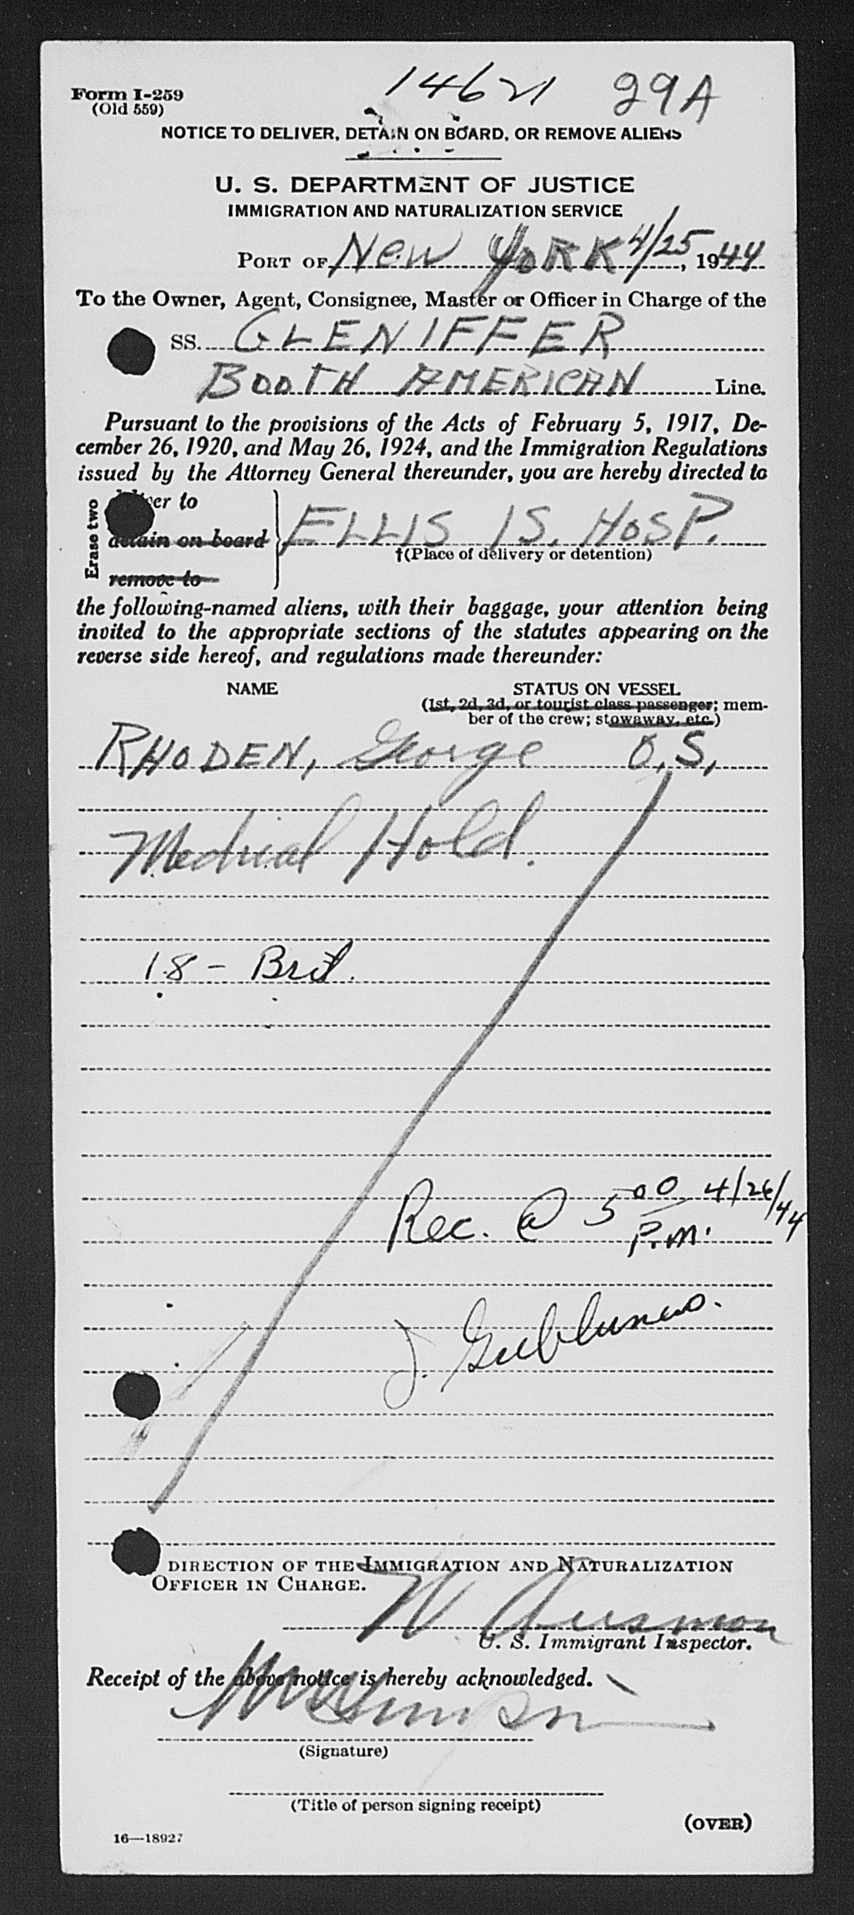 Form I-259
(Old 559)
14621 29A
NOTICE TO DELIVER, DETAIN ON BOARD, OR REMOVE ALIENS
U. S. DEPARTMENT OF JUSTICE
IMMIGRATION AND NATURALIZATION SERVICE
PORT OF New YORK 4/25, 1944
To the Owner, Agent, Consignee, Master or Officer in Charge of the
SS. GLENIFFER
BOOTH AMERICAN Line.
Pursuant to the provisions of the Acts of February 5, 1917, De-
cember 26, 1920, and May 26, 1924, and the Immigration Regulations
issued by the Attorney General thereunder, you are hereby directed to
Erase two
deliver to
detain on board
remove to
ELLIS IS. HOSP.
†(Place of delivery or detention)
the following-named aliens, with their baggage, your attention being
invited to the appropriate sections of the statutes appearing on the
reverse side hereof, and regulations made thereunder:
NAME STATUS ON VESSEL
(1st, 2d, 3d, or tourist class passenger; mem-
ber of the crew; stowaway, etc.)
RHODEN, George O.S.
Medical Hold.
18 - Brit.
Rec. @ 5 00 P.M. 4/26/44
J.
DIRECTION OF THE IMMIGRATION AND NATURALIZATION
OFFICER IN CHARGE.
W.
U. S. Immigrant Inspector.
Receipt of the above notice is hereby acknowledged.
(Signature)
(Title of person signing receipt)
(OVER)
16—18927